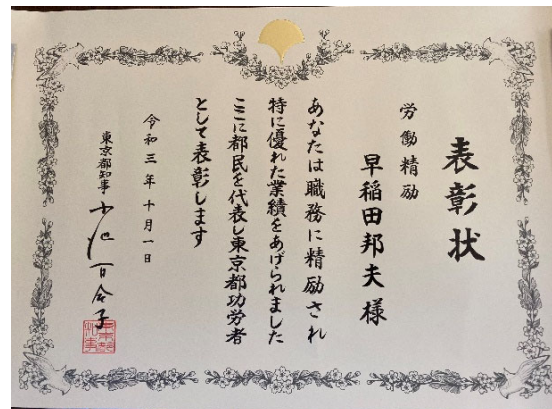 表彰状
労働精励
早稲田邦夫様
あなたは職務に精励され
特に優れた業績をあげられました
ここに都民を代表し東京都功労者
として表彰します
令和三年十月一日
東京都知事 小池百合子